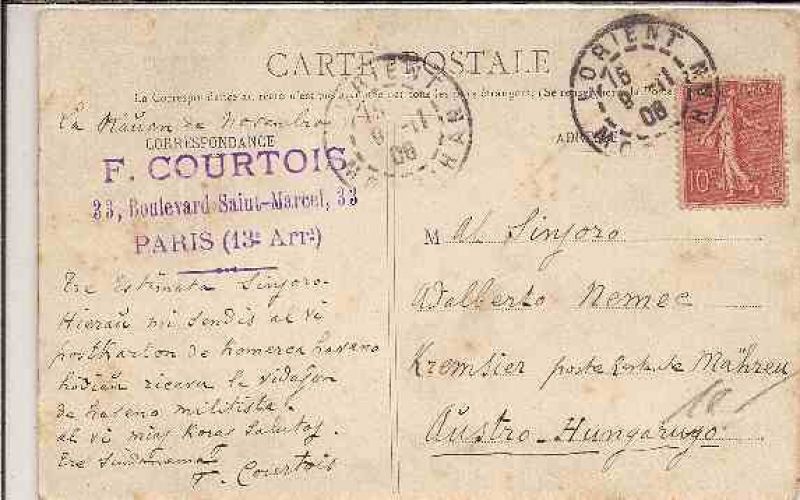 CARTE POSTALE
La Correspondance au recto n'est pas acceptée par tous les pays étrangers. (Se renseigner à la Poste)
La 8an de Novembro
CORRESPONDANCE
F. COURTOIS
33, Boulevard Saint-Marcel, 33
PARIS (13e Arrt)
Tre Estimata Sinjoro.
Hieraŭ mi sendis al vi
postkarton de komerca haveno
hodiaŭ ricevu la vidaĵon
de haveno militista.
al vi miaj koraj salutoj.
Tre
F. Courtois
ADRESSE
LORIENT
8 -11
06
10c
M Al Sinjoro
Adalberto Nemec
Kremsier poste restante Mähren
Aŭstro-Hungarujo